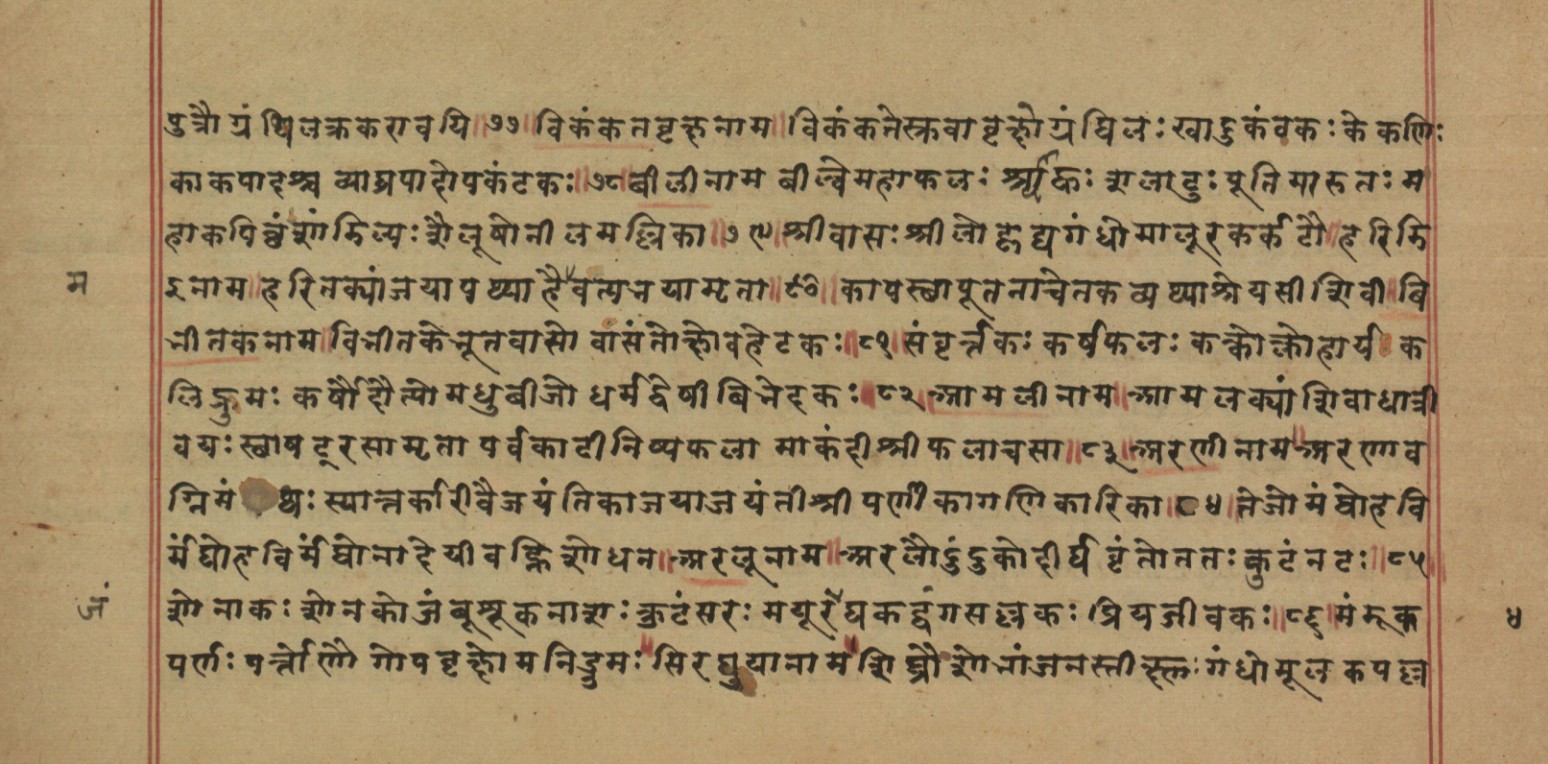 पुत्रौ ग्रंथिलक्रकरावपि ७७ विकंकतवृक्षनाम विकंकतेस्त्रुवावृक्षो ग्रंथिलः स्वादुकंटकः केकणिः
काकपादश्च व्याघ्रपादोपकंटकः ७८ बीलीनाम बील्वेमहाफलः शलाटुः पूतिमारुतः म
हाकपित्थं शांडिल्यः शैलूषोनीलमल्लिका ७९ श्रीवासः श्री गंधोमालूरकर्कटौ हरिडि
इनाम हरितक्यांजयापथ्याहैवत्यभयामृता ८० कायस्छापूतनाचेतकव्यथ्याश्रेयसीशिवी बि
भीतकनाम विभीतकेभूतवासो वासंतोक्षोवहेटकः ८१ संवर्त्तकः कर्षफलः हार्य क
लिद्रुमः कर्षो मधुबीजो धर्मद्वेषीबिभेदकः ८२ आमलीनाम आमलक्यांशिवाधात्री
वयःस्छाषट्रसामृता पर्वकाटीनिष्पफला माकंदीश्रीफलाचसा ८३ अरणीनाम अरणाव
ग्निमंथः स्यान्तर्कारीवैजयंतिकाजयाजयंतीश्रीपर्णीकागणिकारिका ८४ तेजोमंथोहवि
र्मंथोहविर्मंथोनादेयीवह्निशोधन अरलूनाम अरलौटुंटुकोदीर्घवृंतोनतः कुटंनटः ८५
शोनाकः शोनकोजंबूशूकनाशः क्रुटंसरः मयूरजंघकट्वंगसल्लकः प्रियजीवकः ८६ मंडूक
पर्णः पत्त्रोर्णो गोपवृक्षोमनिद्रुमः सिरघुयानाम शिग्रौशोभांजनस्तीक्ष्णगंधोमूलकपल्ल
म
जं
४